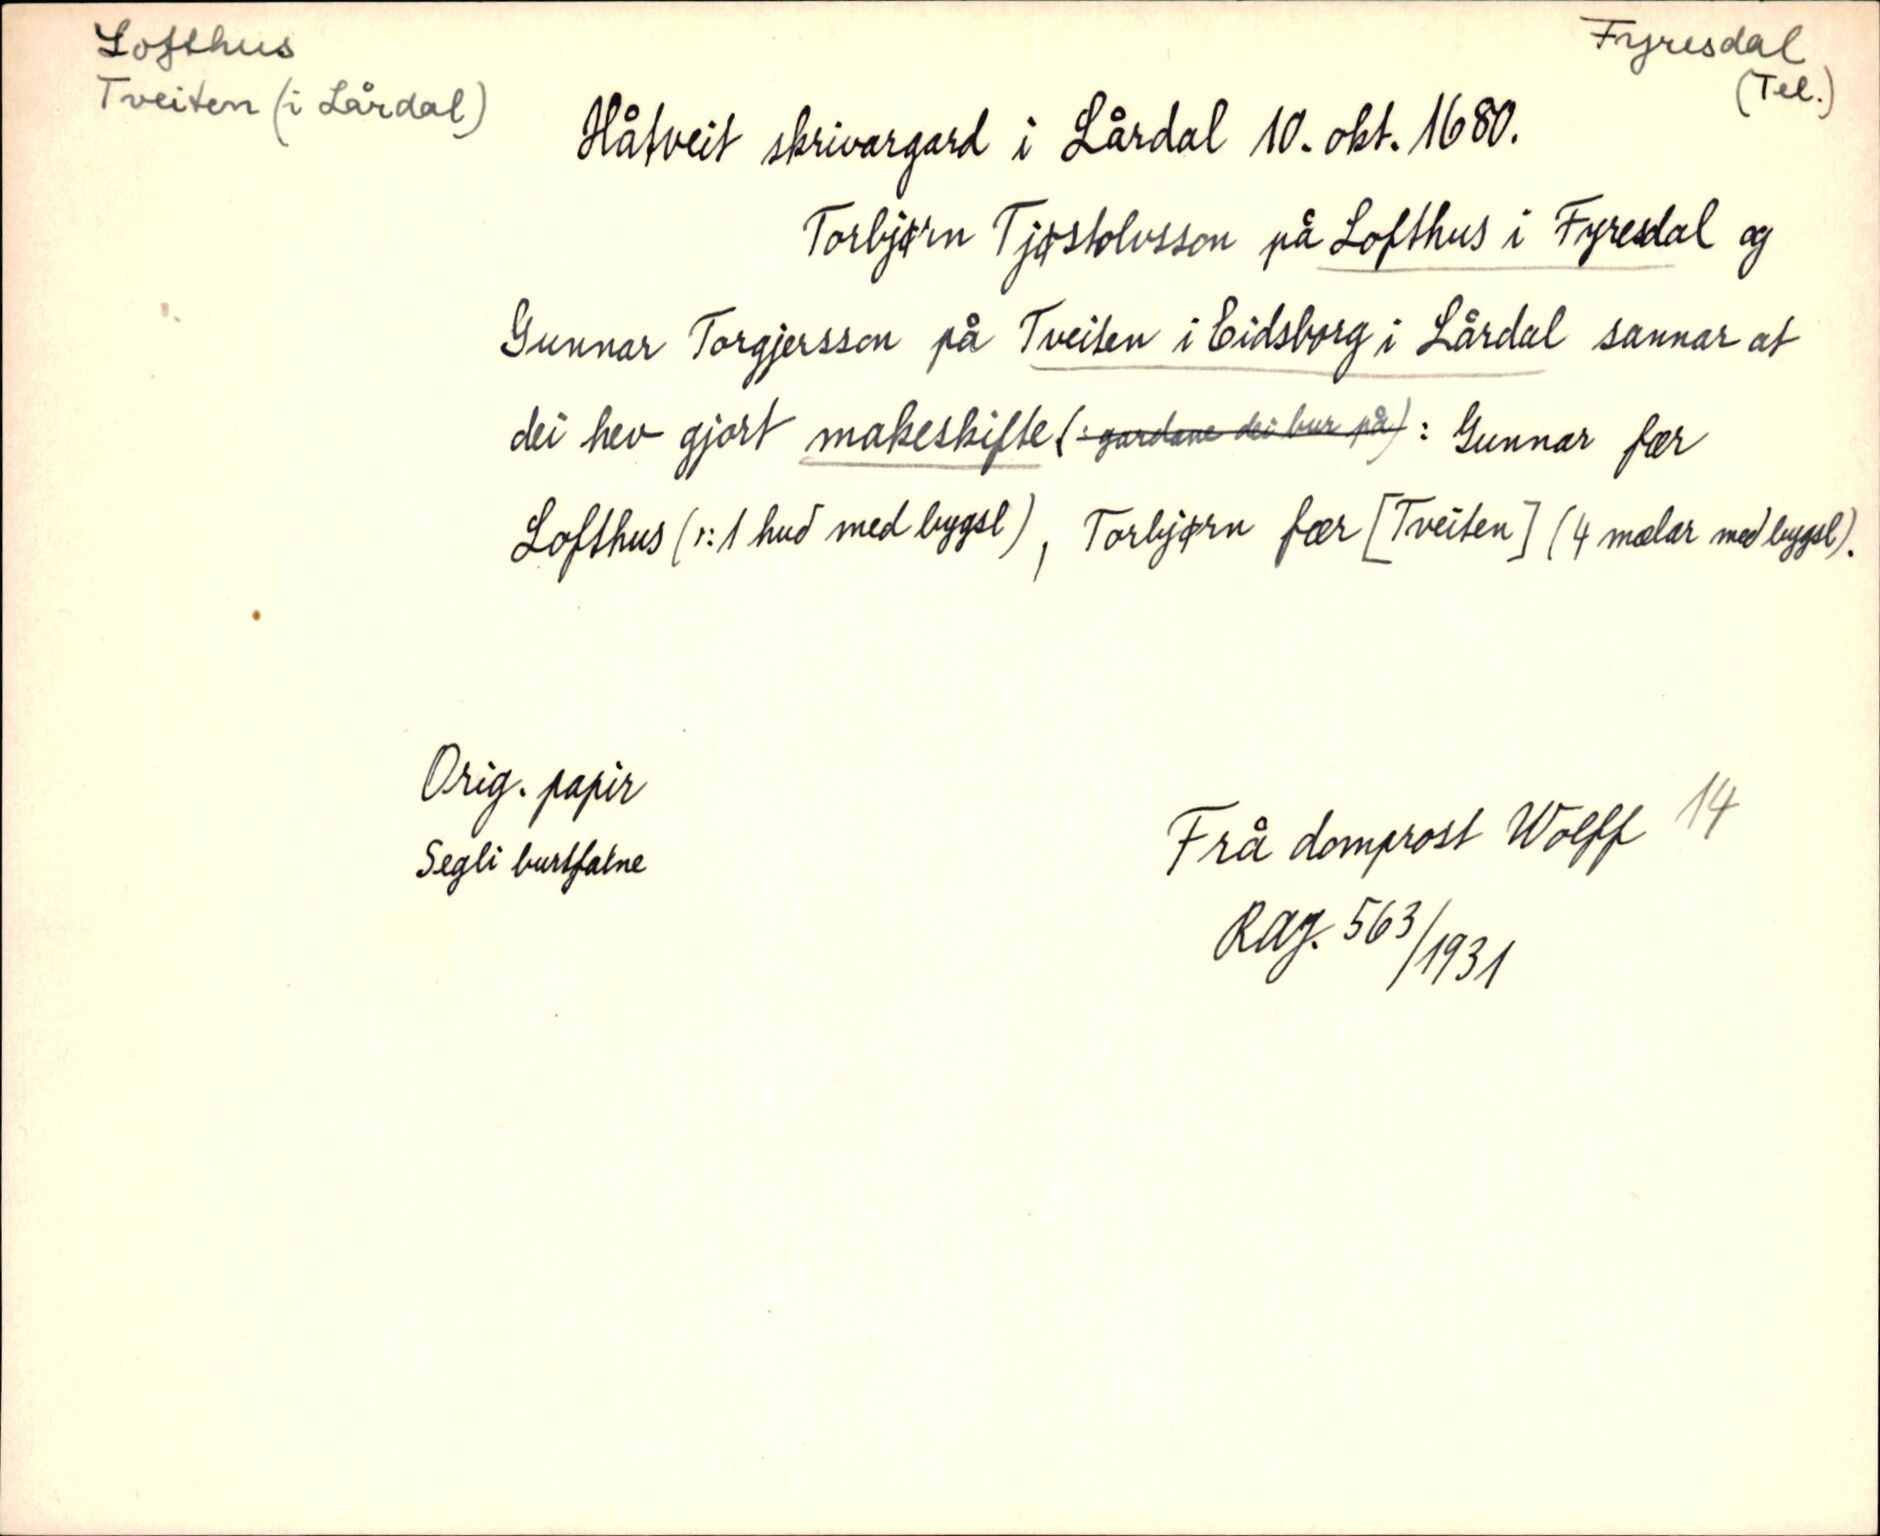 Lofthus
Tveiten (i Lårdal)
Fyresdal
(Tel.)
Håtveit skrivargard i Lårdal 10. okt. 1680.
Torbjørn Tjøstolvsson på Lofthus i Fyresdal og
Gunnar Torgjersson på Tveiten i Eidsborg i Lårdal sannar at
dei hev gjort makeskifte (: gardane dei bur på) : Gunnar fær
Lofthus (ɔ: 1 hud med bygsl), Torbjørn fær [Tveiten] (4 mælar med bygsl).
Orig. papir
Segli burtfalne
Frå domprost Wolff 14
RAJ. 563/1931